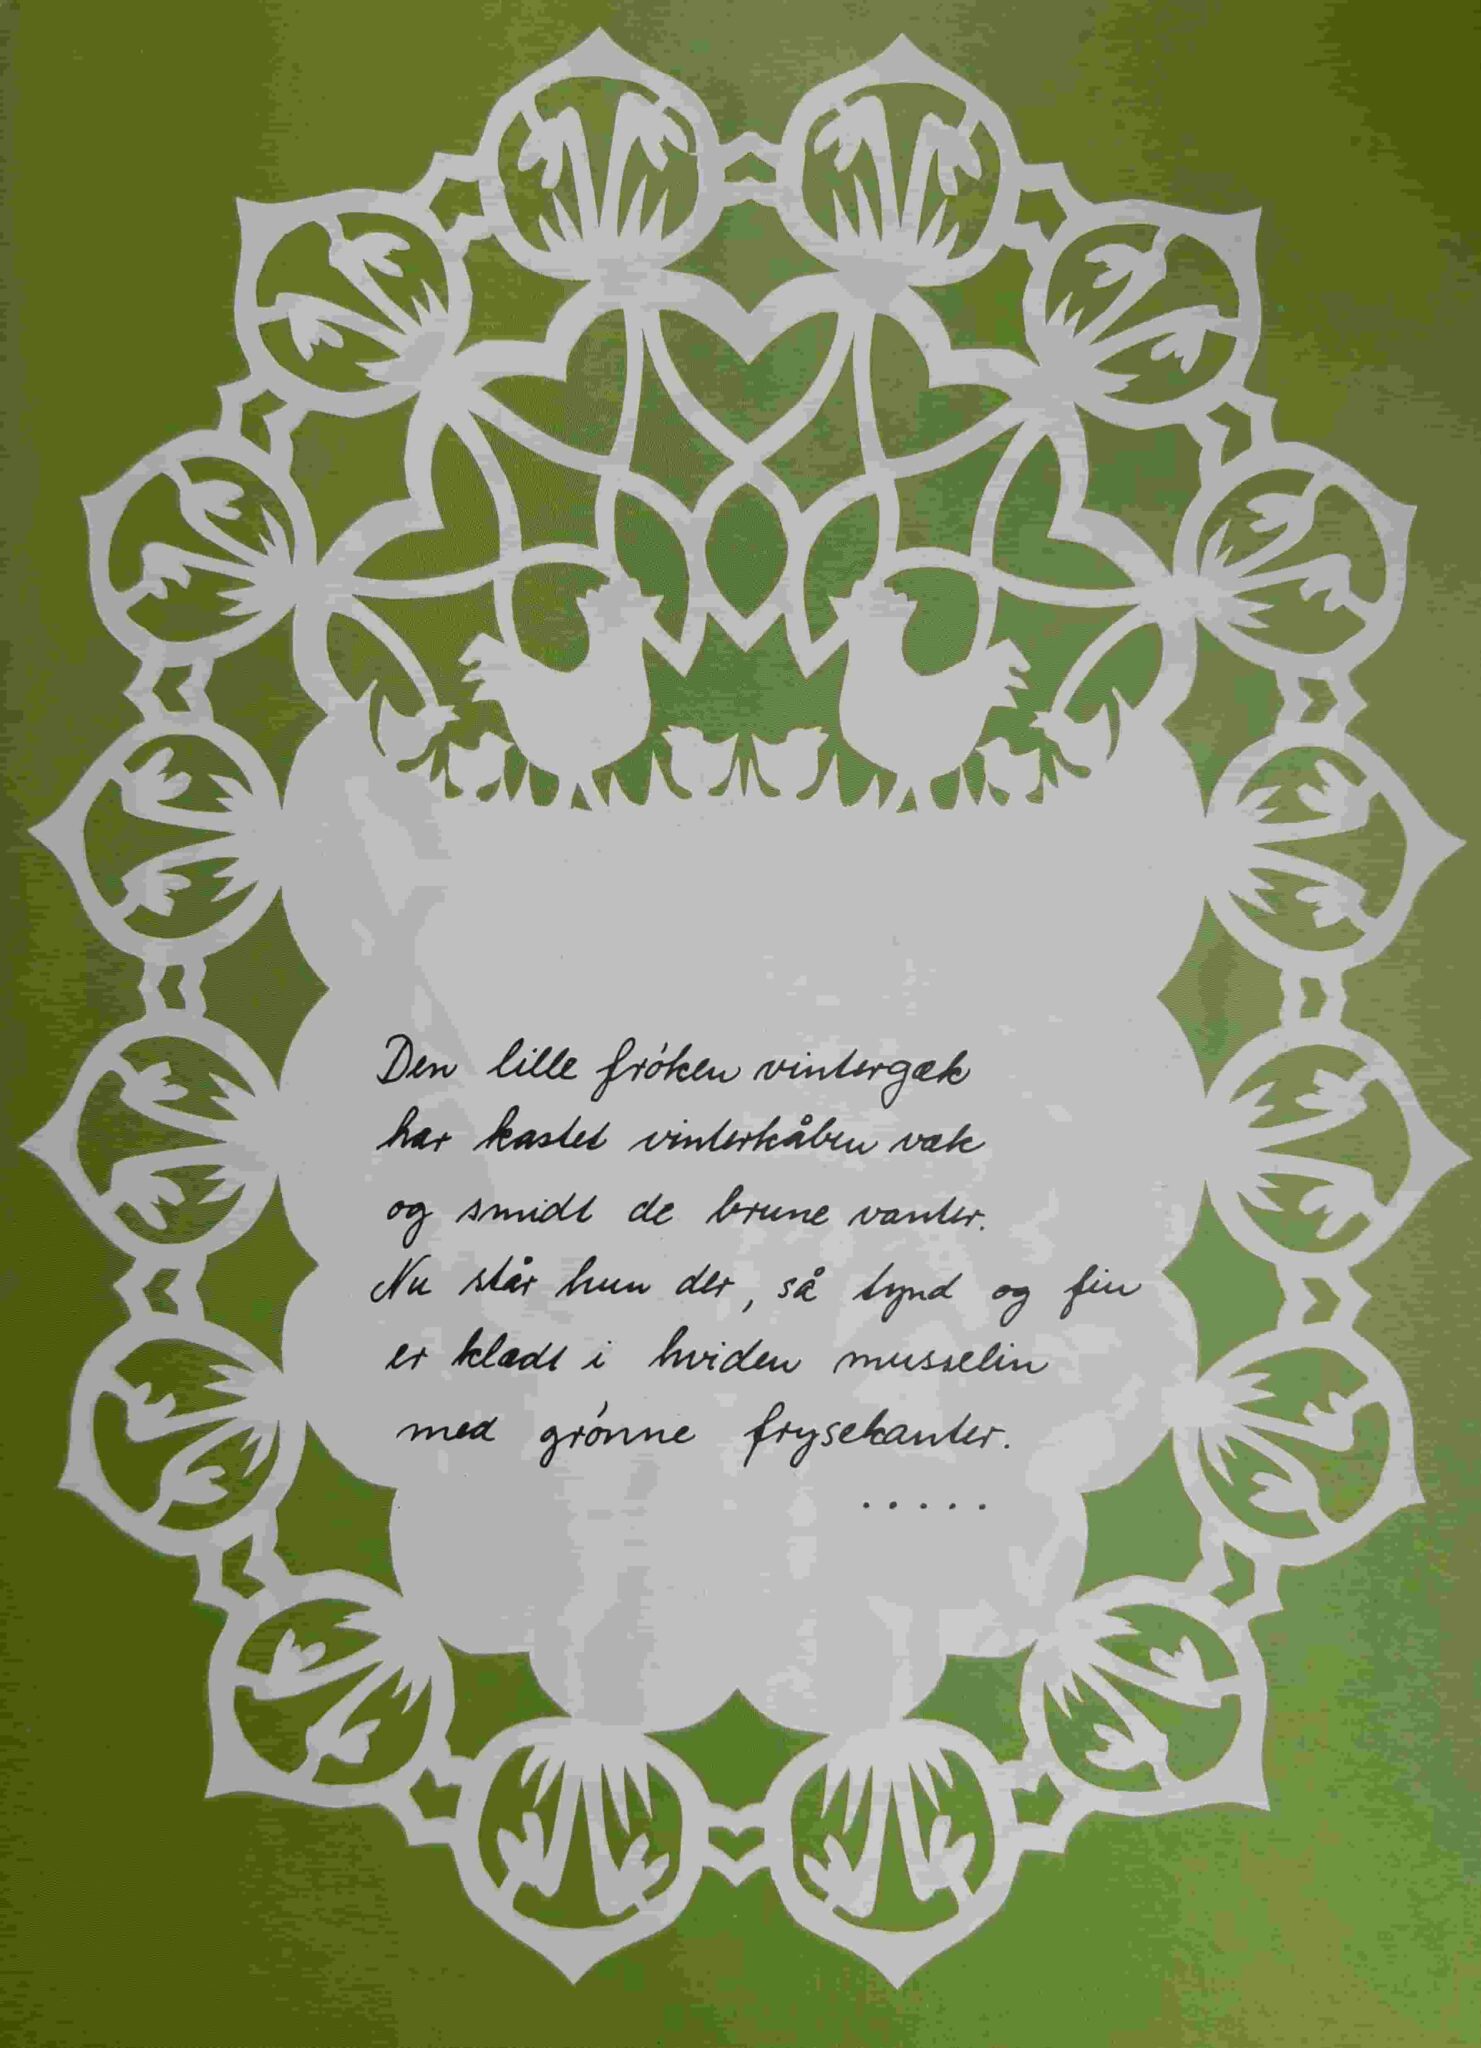 Den lille frøken vintergæk
har kastet vinterkåben væk
og smidt de brune vanter.
Nu står hun der, så tynd og fin
er klædt i hviden musselin
med grønne frysekanter.
.....